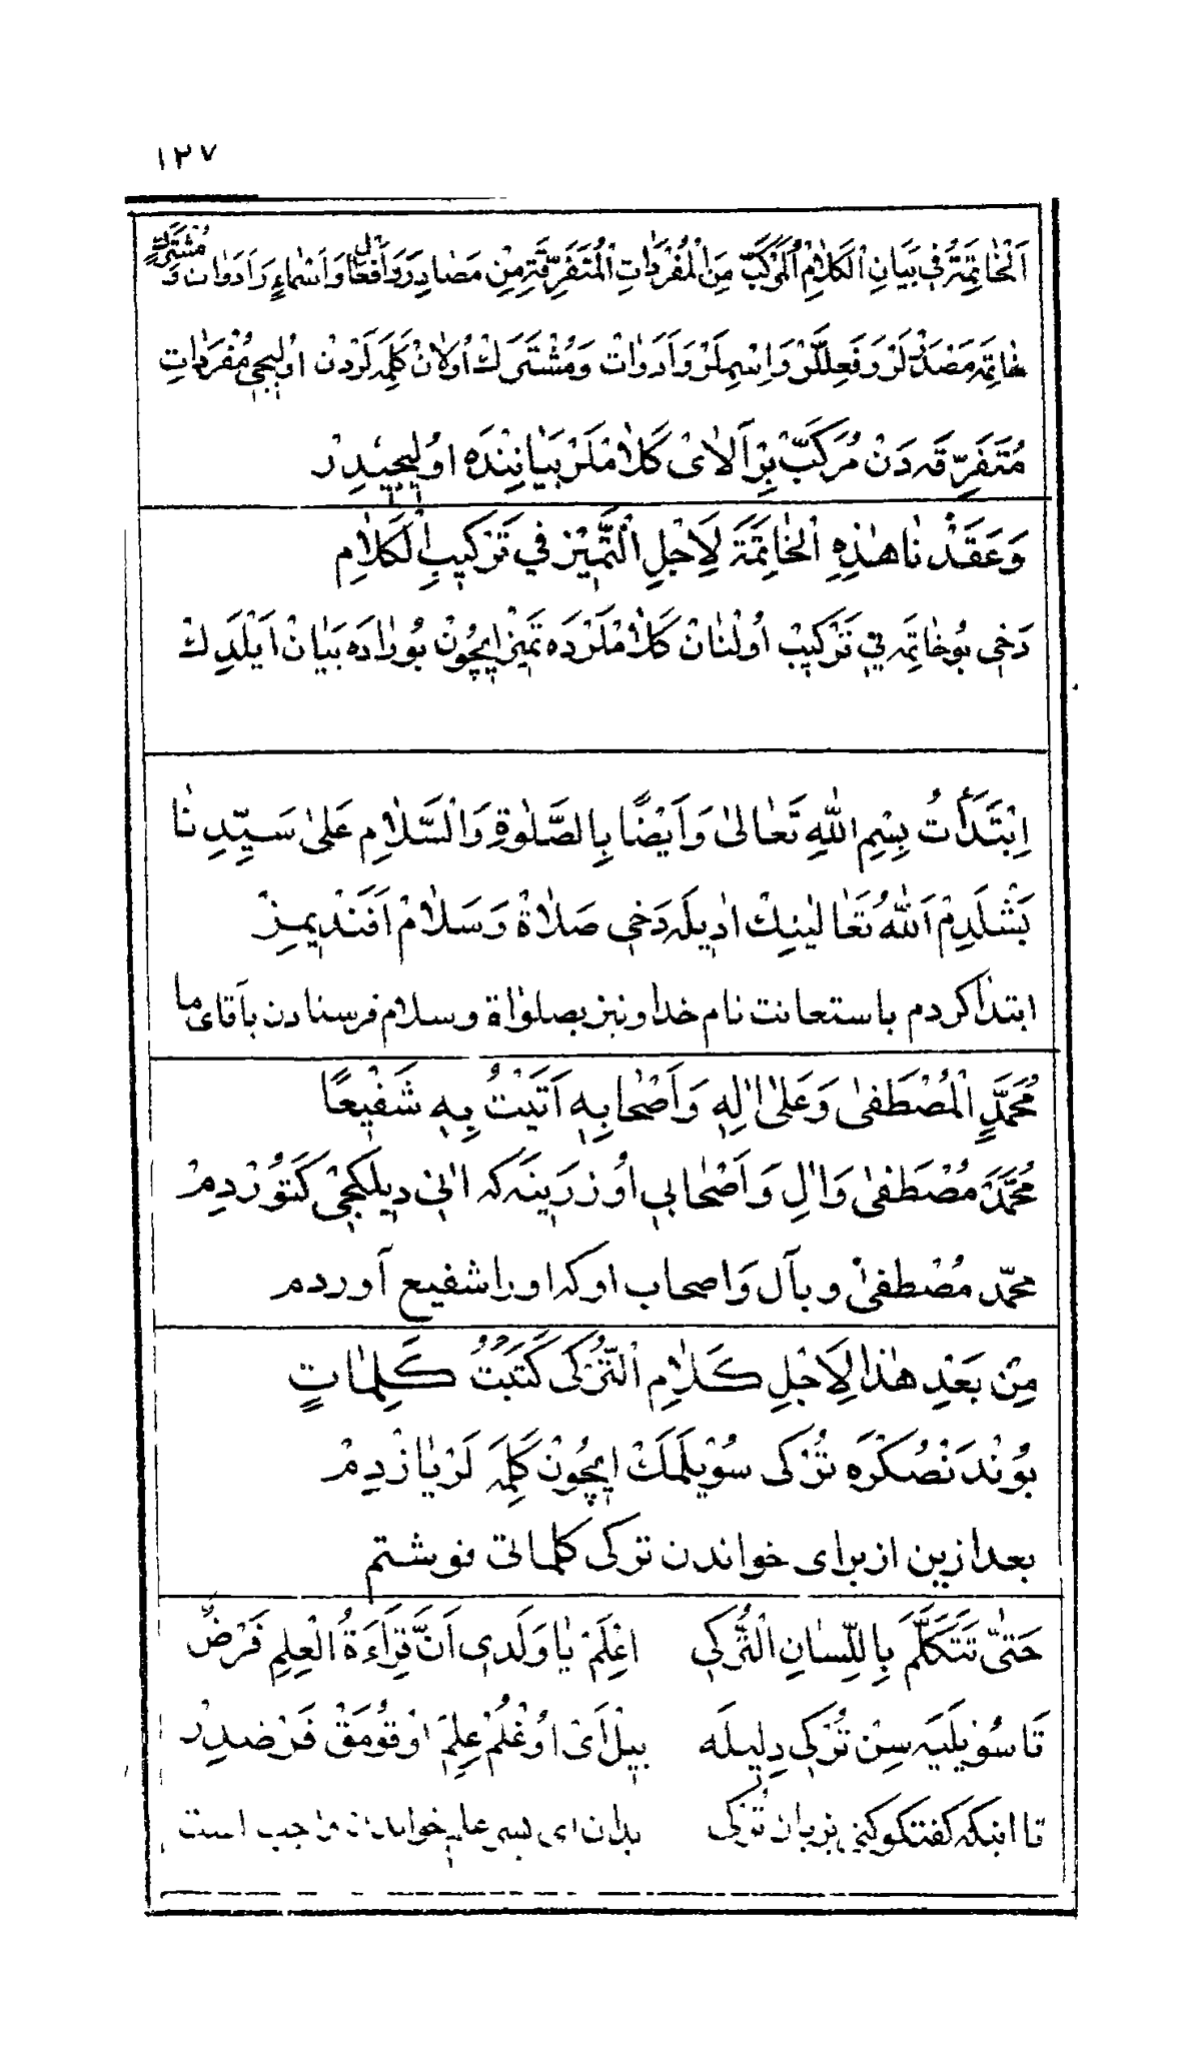 ١٢٧
اَلْخٰاتِمَةُ فِى بَيَانِ الْكَلاٰمِ الْمُرَكَّبِ مِنَ الْمُفْرَدٰاتِ الْمُتَفَرِّقَةِ مِنْ مَصٰادِرَ وَاَفْعٰالٍ وَاَسْمٰاءٍ وَاَدَوٰاتٍ وَ مُشْتَرَكٍ
خٰاتِمَه مَصْدَرْلَرْ وَفَعِلْلَرْ وَاِسْمِلَرْ وَاَدَوٰاتْ وَمُشْتَرَكْ اُولاٰنْ كَلِمَه لَرْدَنْ اُولٖيجٖى مُفْرَدٰاتِ
مُتَفَرِّقَه دَنْ مُرَكَّبْ بِرْ اَلاٰىْ كَلاٰمْلَرْ بَيٰانِنْدَه اوُلٖيجٖيدِرْ
وَعَقَدْنٰا هٰذِهِ الْخٰاتِمَةَ لِاَجْلِ التَّمْيٖيزِ فِي تَرْكٖيبِ الْكَلاٰمِ
دَخٖى بُو خٰاتِمَه يٖ تَرْكٖيبْ اُولْنٰانْ كَلاٰمْلَرْدَه تَمٖيزْ اٖيچُونْ بُورٰادَه بَيٰانْ اَيْلَدِكْ
اِبْتَدَأْتُ بِسْمِ اللّٰهِ تَعٰالىٰ وَاَيْضًا بِالصَّلٰوةِ وَالسَّلاٰمِ عَلىٰ سَيِّدِنٰا
بَشْلَدِمْ اَللّٰهُ تَعٰالٰينِكْ ادٖيلَه دَخٖى صَلاٰةْ وَسَلاٰمْ اَفَنْدٖيمِزْ
ابتدا كردم باستعانت نام خدا و نيز بصلواة وسلام فرستادن بآقاى ما
مُحَمَّدٍ الْمُصْطَفىٰ وَعَلىٰ اٰلِهٖ وَاَصْحٰابِهٖ اَتَيْتُ بِهٖ شَفٖيعًا
مُحَمَّدَ مُصْطَفىٰ وَاٰلِ وَاَصْحٰابٖى اوُزَرٖينَه كه انٖى دٖيلَكجٖى كَتوُرْدِمْ
محمّد مُصْطفىٰ و بآل وَاصحاب او كه اورا شفيع آوردم
مِنْ بَعْدِ هٰذٰا لِاَجْلِ كَلاٰمِ التُّرْكٖى كَتَبْتُ كَلِمٰاتٍ
بوُنْدَنْصُكْرَه تُرْكٖى سُوْيلَمَكْ اٖيچُونْ كَلِمَه لَرْ يٰازْدِمْ
بعد ازين از براى خواندن تركى كلماتى نوشتم
حَتىّٰ تَتَكَلَّمَ بِاللِّسٰانِ التُّرْكٖى    اعْلَمْ يٰا وَلَدٖى اَنَّ قِرٰاءَةَ الْعِلْمِ فَرْضٌ
تَا سُوْيلَيَه سِنْ تُرْكٖى دِلٖيلَه    بٖيلْ اَىْ اوُغْلُمْ عِلِمْ اوْقوُمَقْ فَرْضدِرْ
تا اينكه كفتكو كنى بزبان تُرْكى    بدان اى پسر علم خواندن واجب است